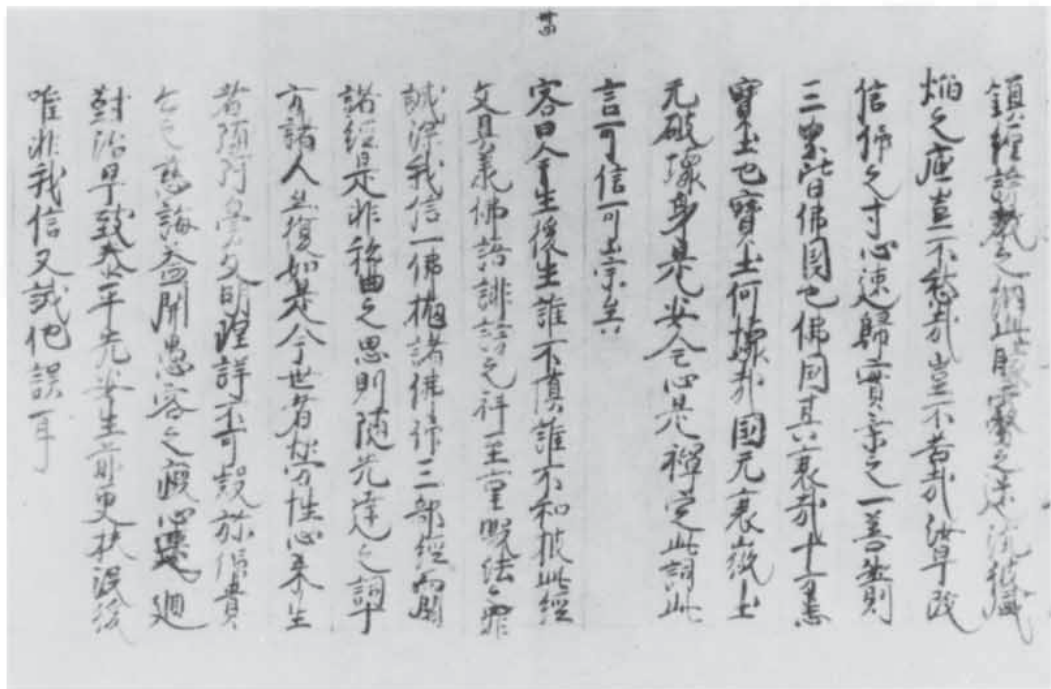 鎮纏謗教之網此朦霧之迷沈彼盛
焔之底豈不愁哉豈不苦哉汝早改
信仰之寸心速歸實乘之一善然則
三界皆佛國也佛國其衰哉十方悉
寶土也寶土何壞哉國无衰微土
无破壞身是安全心是禪定此詞此
言可信可崇矣
客曰今生後生誰不慎誰不和披此經
文具承佛語誹謗之科至重毀法之罪
誠深我信一佛抛諸佛仰三部經而閣
諸經是非私曲之思則随先達之詞十
方諸人亦復如是今世者勞性心來生
者堕阿鼻文明理詳不可疑弥仰貴
公之慈誨益開愚客之癡心速廻
對治早致泰平先安生前更扶没後
唯非我信又誡他誤耳